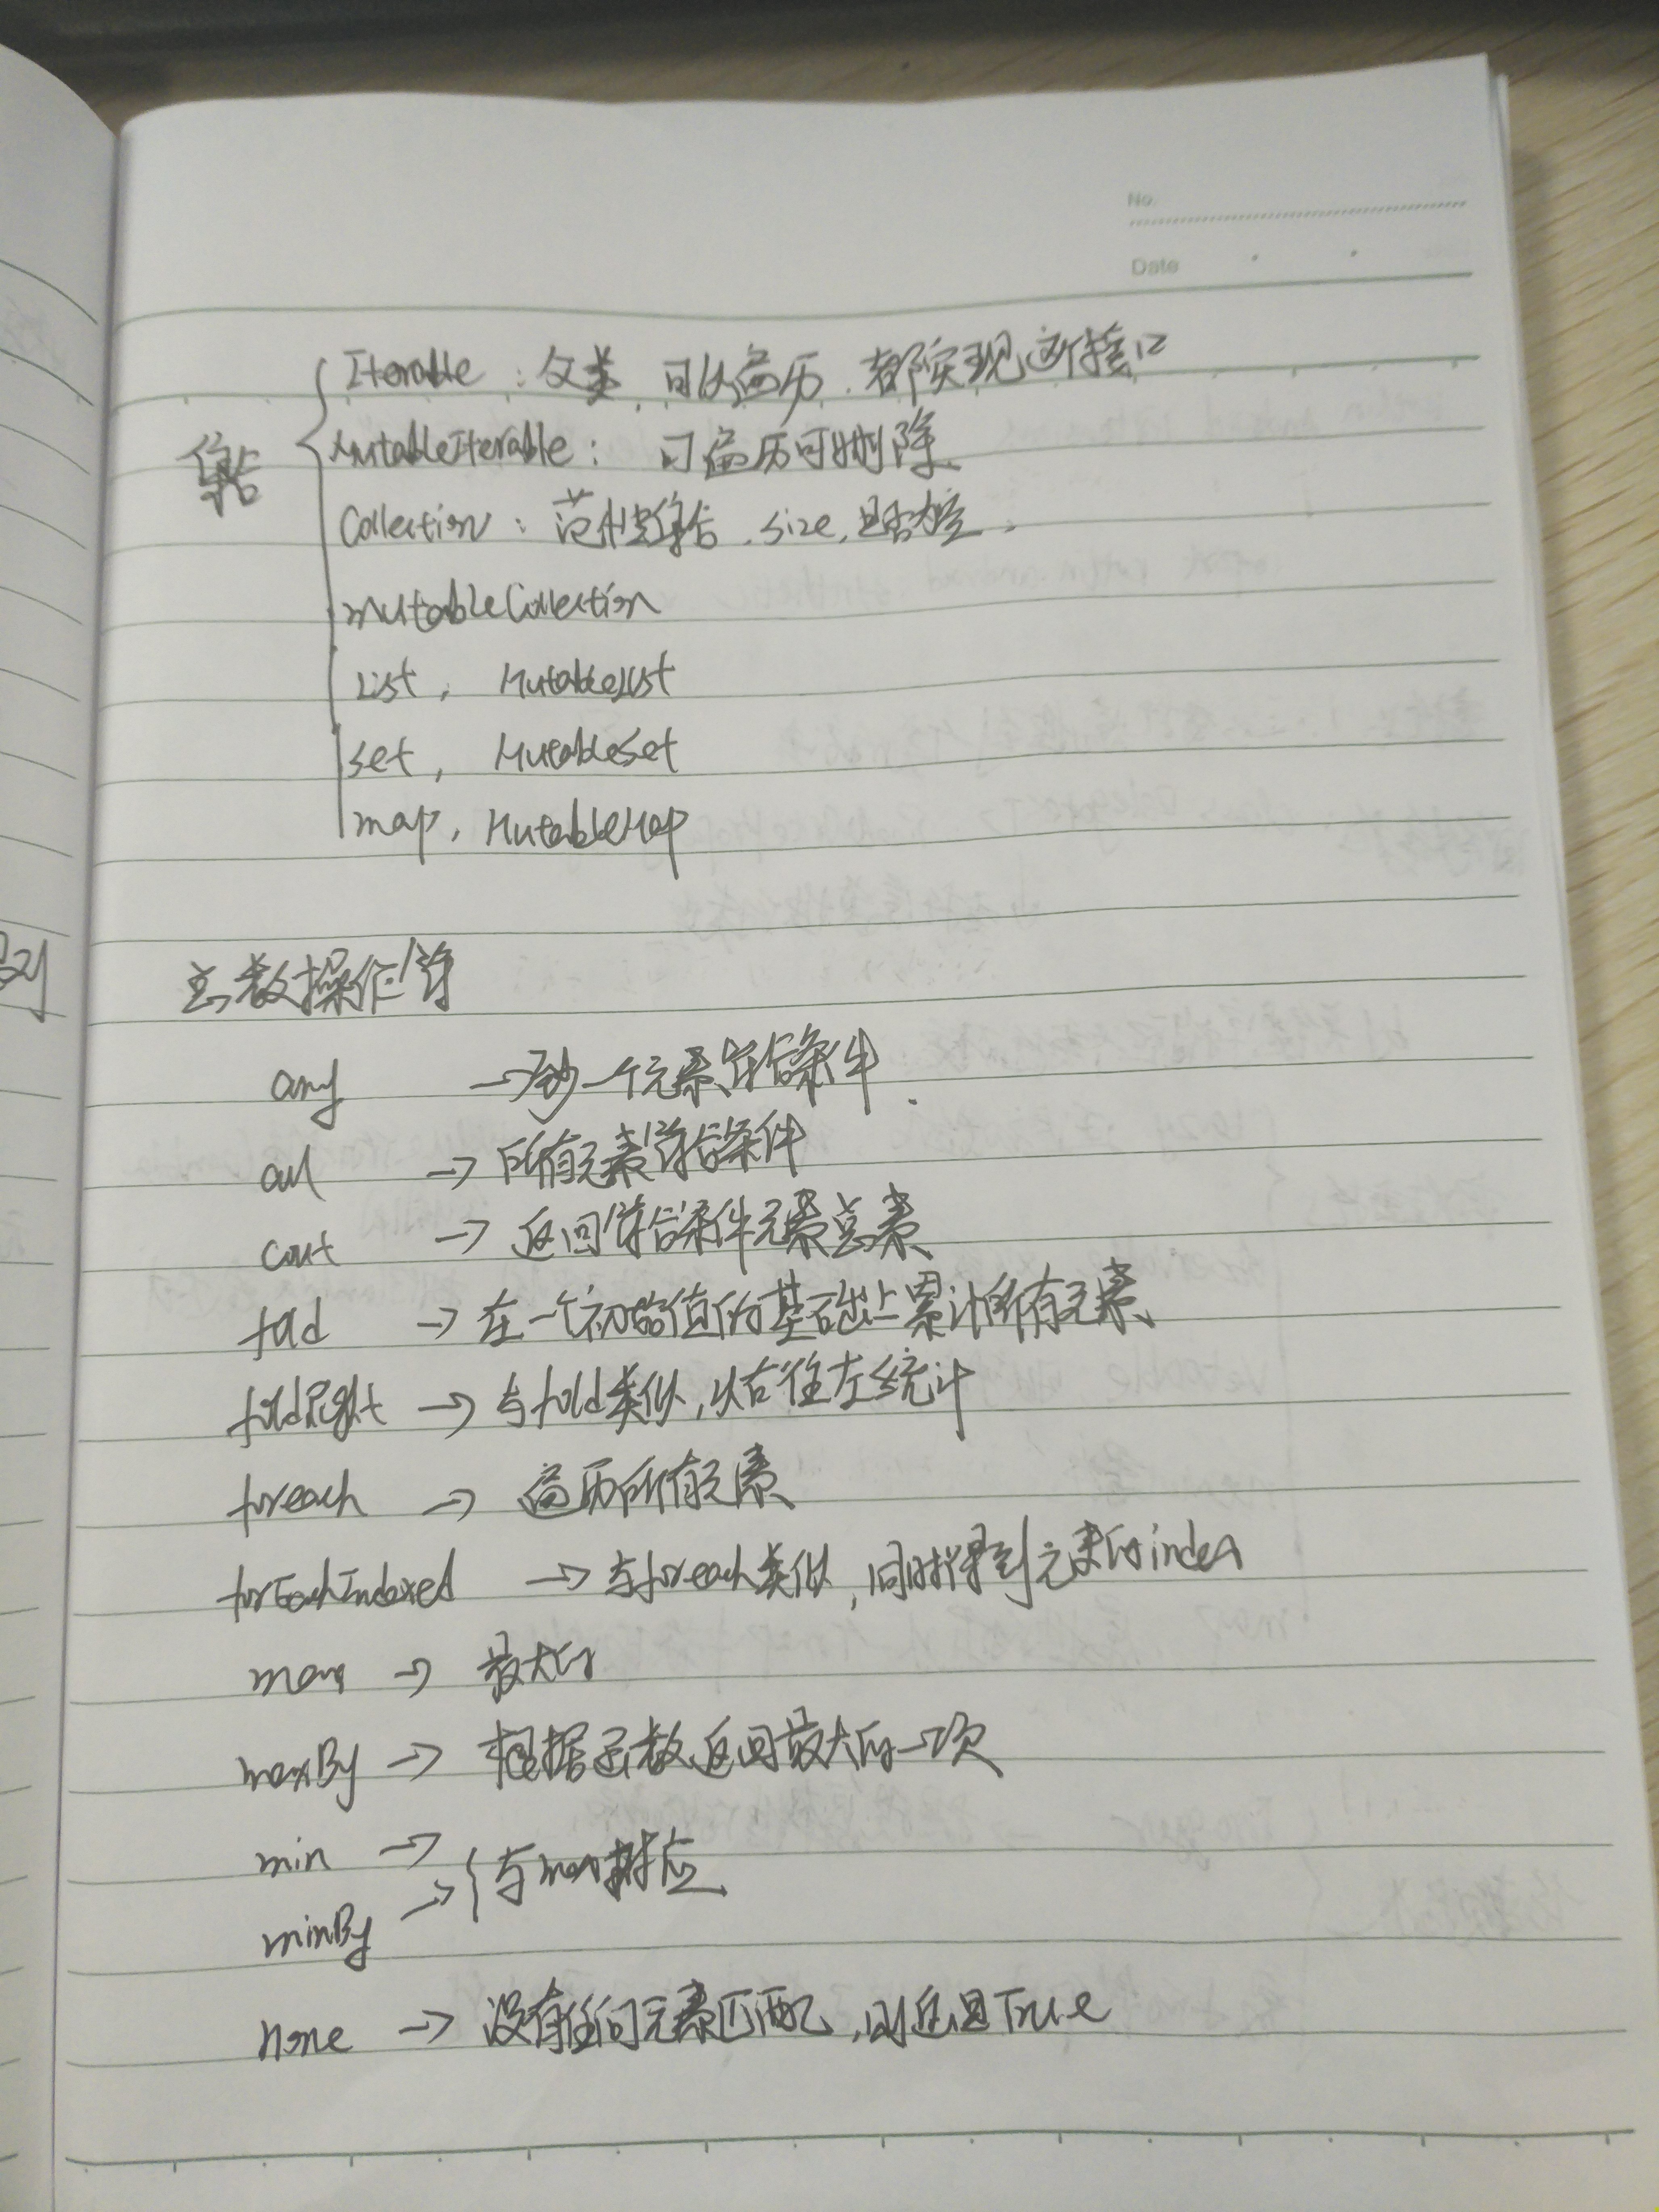 No.
Date
集合
Iterable : 父类, 可以遍历. 都实现这个接口
MutableIterable : 可遍历可删除.
Collection : 范性集合. size, 是否为空.
mutableCollection
List, MutableList
set, MutableSet
map, MutableMap
总数操作符
any → 至少一个元素符合条件.
all → 所有元素符合条件
cout → 返回符合条件元素总素
fold → 在一个初始值的基础上累计所有元素.
foldRight → 与fold类似, 从右往左统计
foreach → 遍历所有元素
forEachIndexed → 与foreach类似, 同时得到元素的index
max → 最大的
maxBy → 根据函数返回最大的一项
min →
minBy → { 与max对应
none → 没有任何元素匹配, 则返回True